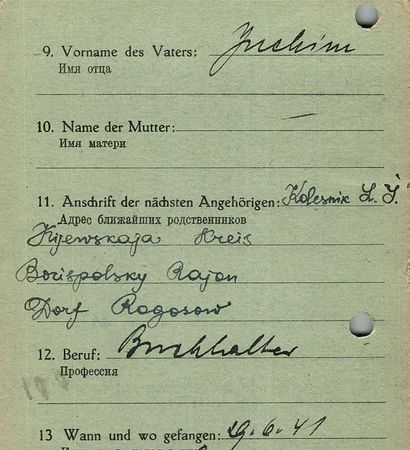 9. Vorname des Vaters: Juchim
Имя отца
10. Name der Mutter: —
Имя матери
11. Anschrift der nächsten Angehörigen: Kolesnik L. J.
Адрес ближайших родственников
Kijewskaja Kreis
Borispolsky Rajon
Dorf Ragosow
12. Beruf: Buchhalter
Профессия
13 Wann und wo gefangen: